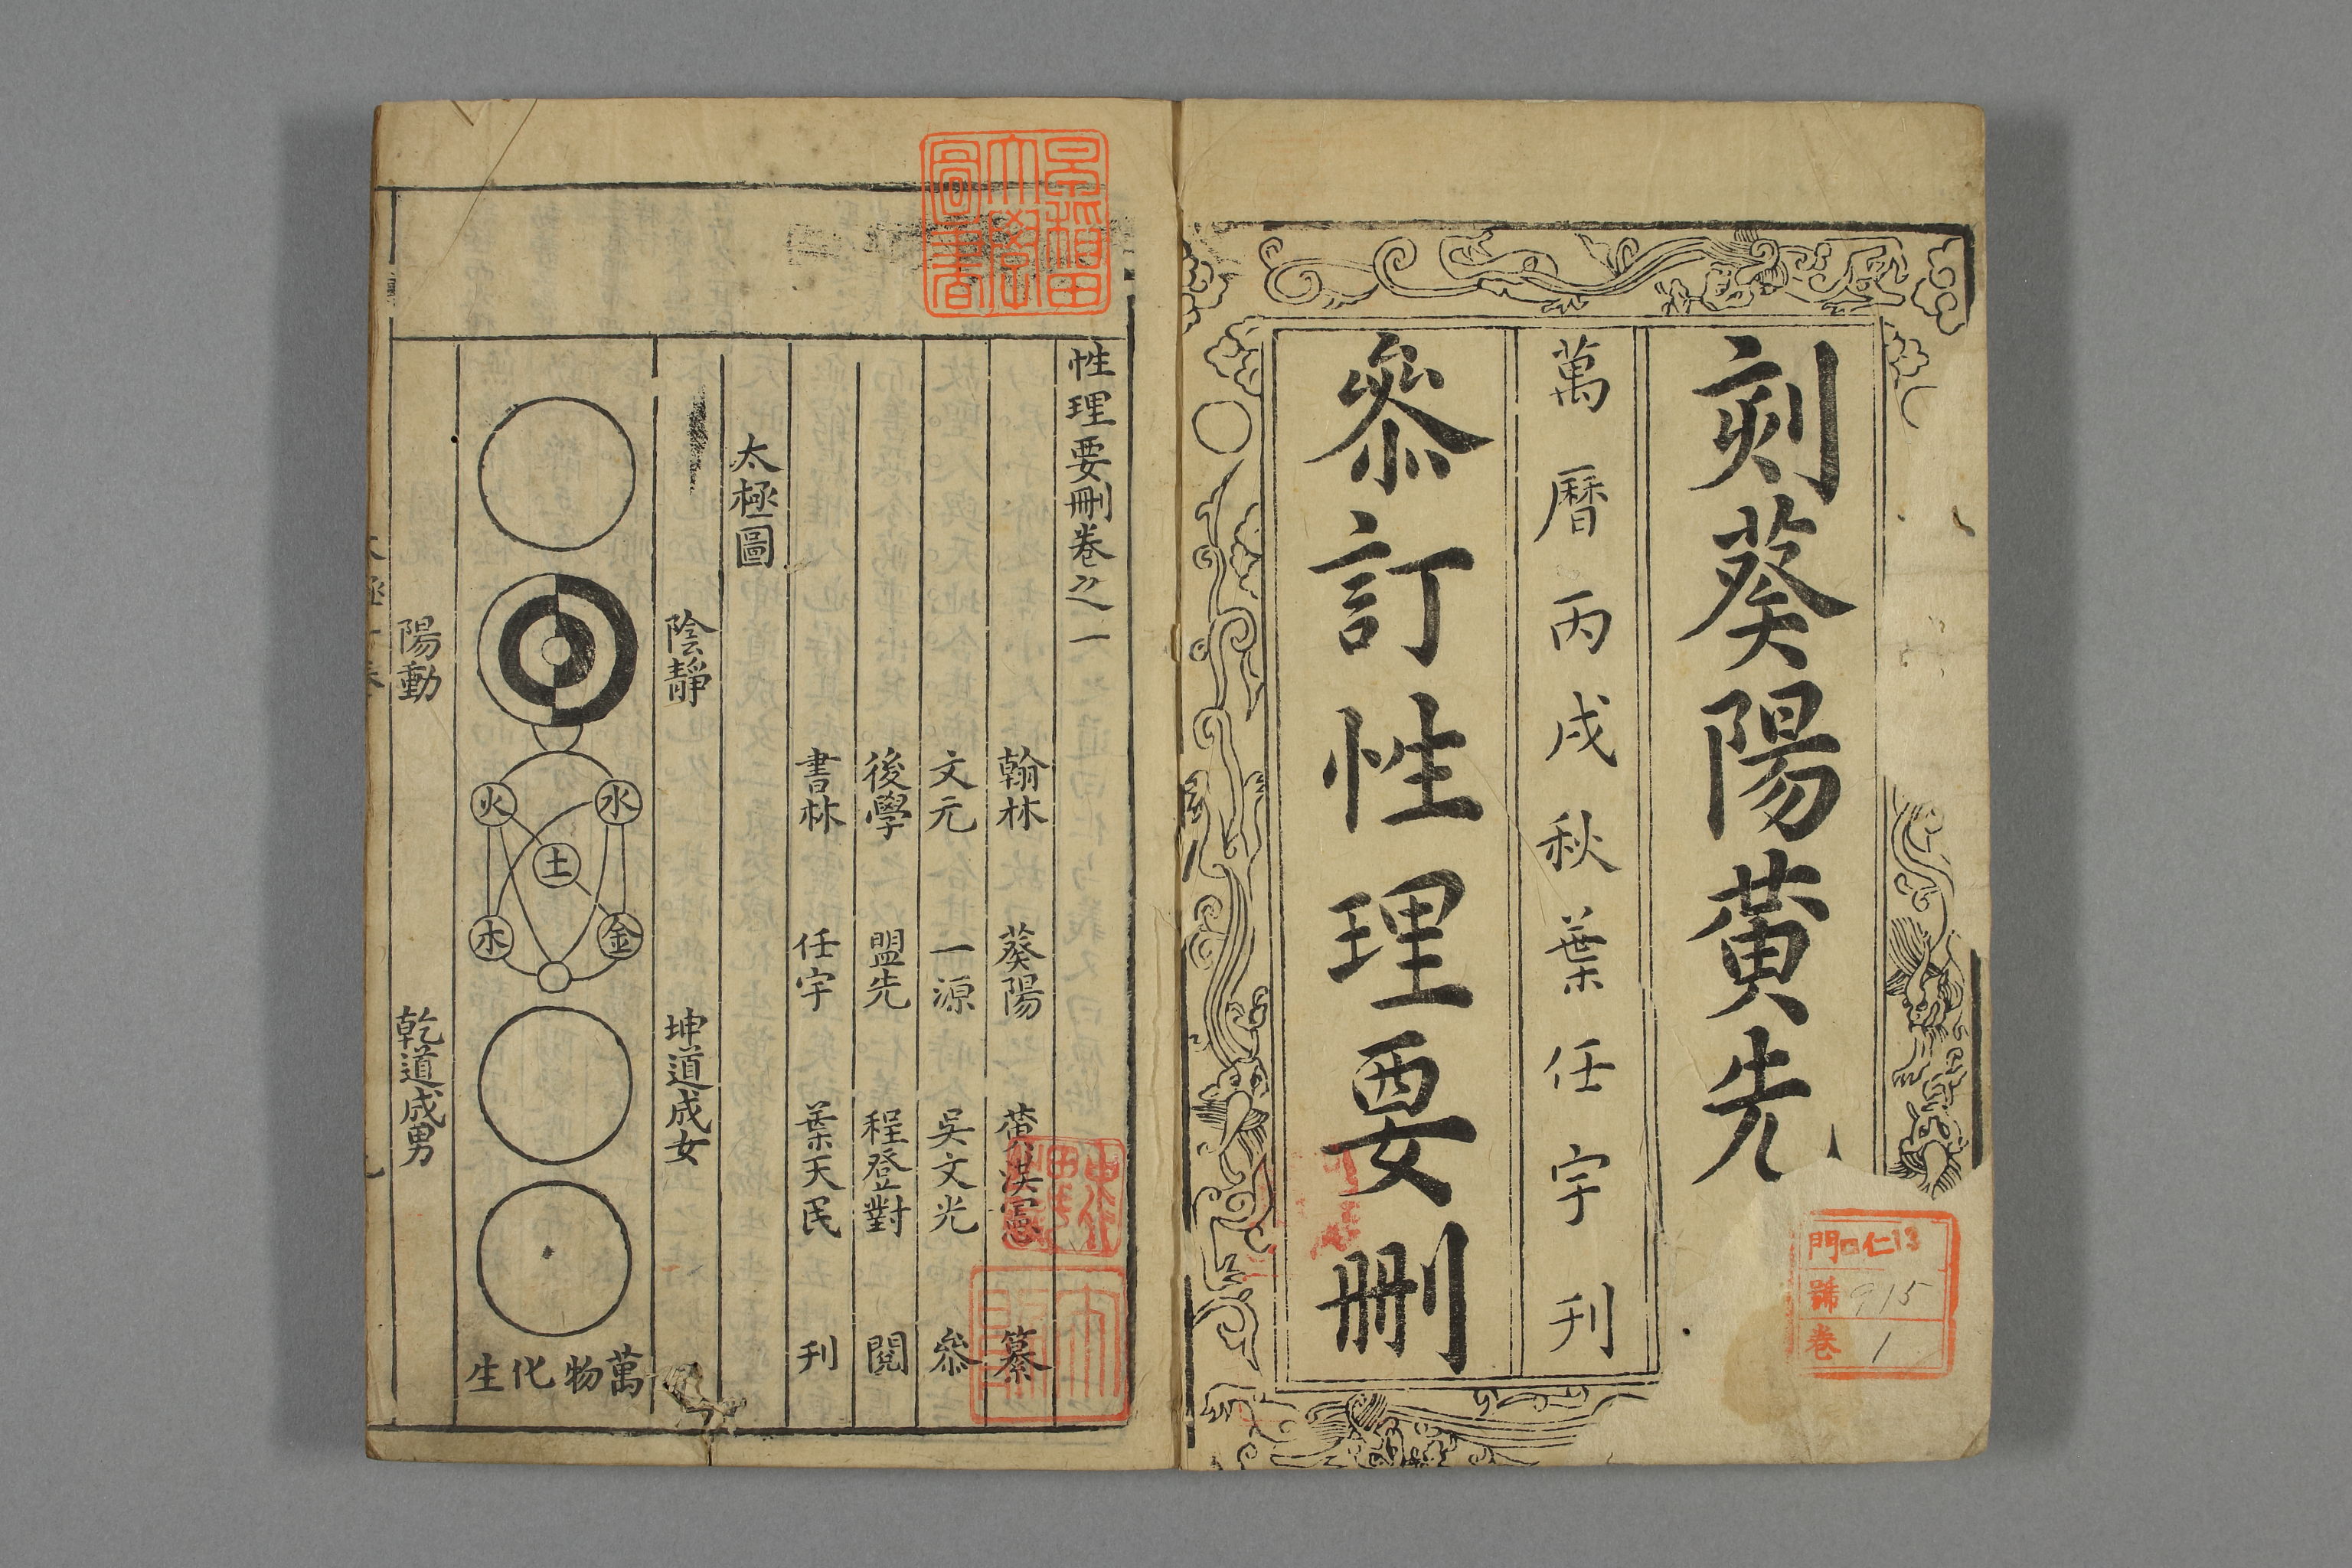 刻葵陽黃先
萬曆丙戌秋葉任宇刊
叅訂性理要刪
門 仁13
號 915
卷 1
早稲田大學圖書
性理要刪卷之一
翰林 葵陽 黃洪憲 纂
文元 一源 吳文光 叅
後學 盟先 程登對 閱
書林 任宇 葉天民 刊
太極圖
陰靜 坤道成女
水
火
土
金
木
萬物化生
陽動 乾道成男